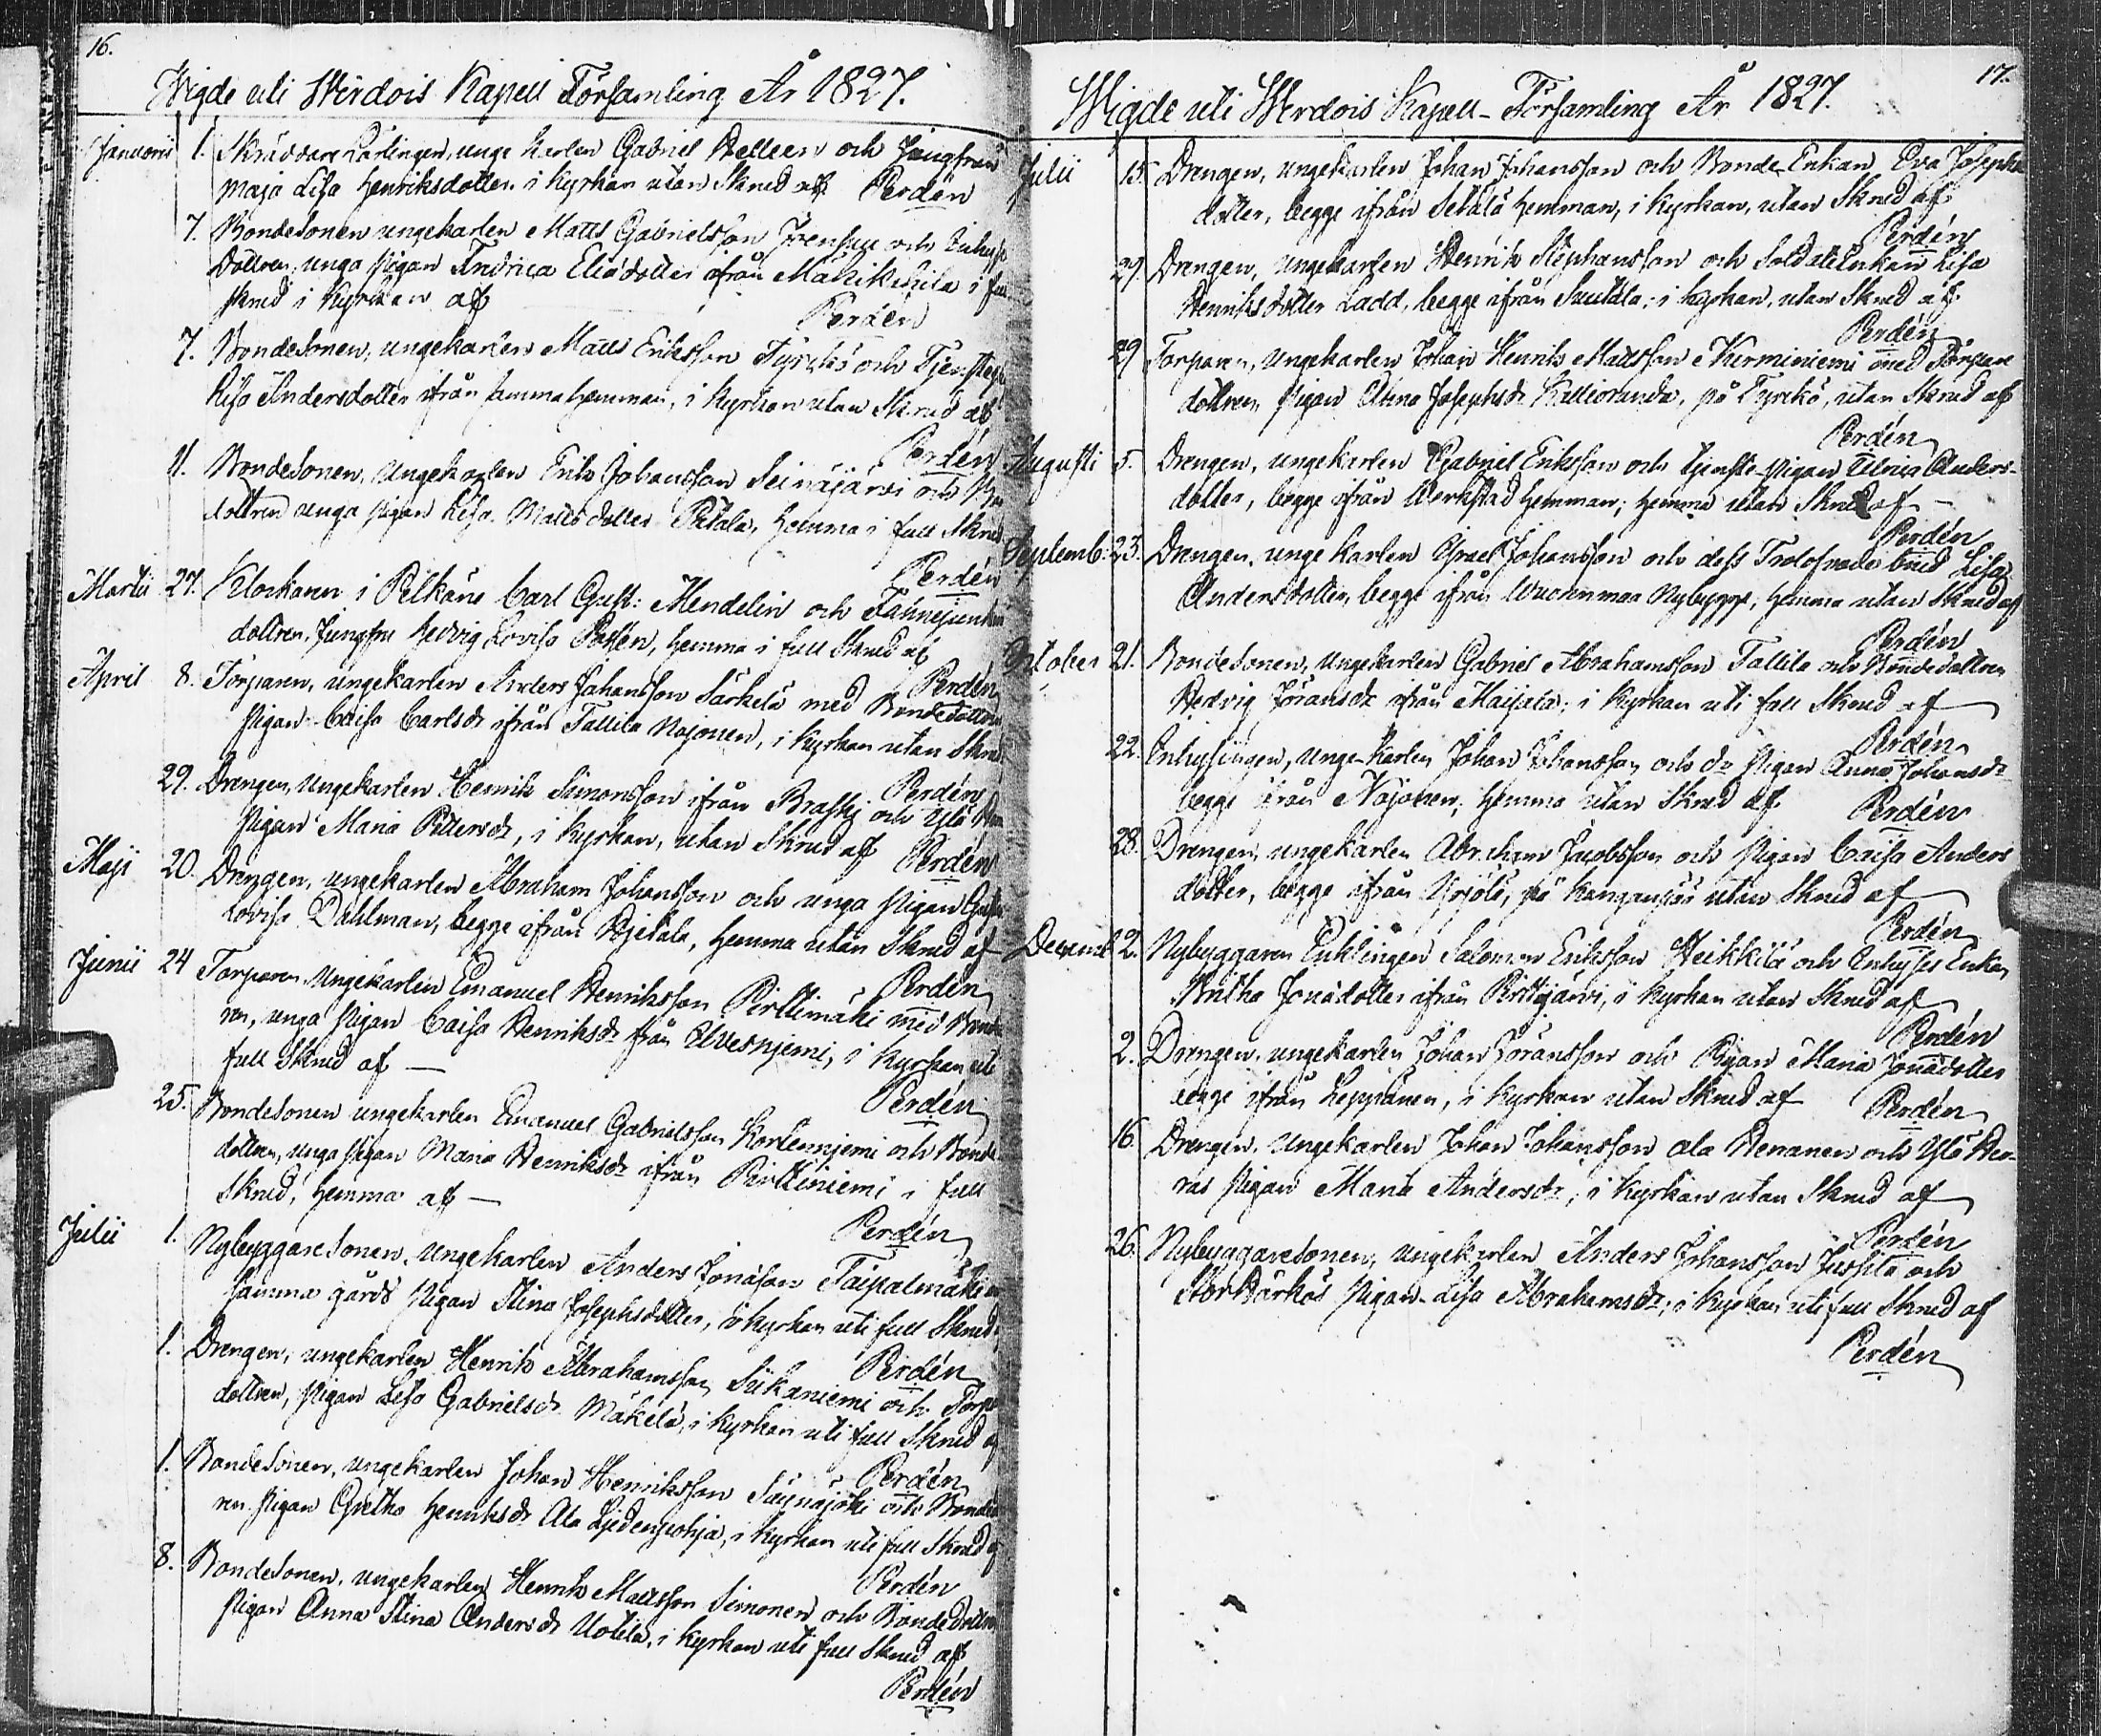 16.
Wigde uti Wirdois Kapell Församling År 1827.
Januarii 1. Skräddare Lärlingen, unge karlen Gabriel Helleen och Jungfrun
Maja Lisa Henriksdotter i kyrkan utan Skrud af Perdén
7. Bondesonen ungekarlen Matts Gabrielsson och Inhyses
Dottren, unga pigan Andriea Eliædotter ifrån i full
skrud i kyrkan af
Perdén
7. Bondesonen, ungekarlen Matts Eriksson Tyrkö och Tjenstepig
Lisa Andersdotter ifrån samma hemman, i kyrkan utan Skrud af
Perdén
11. Bondesonen, Ungekarlen Erik Johansson Seinäjärvi och
dottren unga pigan Lisa Mattsdotter Pätala, hemma i full Skrud
Perdén
Martii 27. Klockaren i Pelkäne Carl Gust: Mendelin och Fännejunkar
dottren, Jungfru Hedvig Lovisa Posén, hemma i full Skrud af
Perdén
April 8. Torparen, ungekarlen Anders Johansson Särkelä med Bondedottren
Pigan Caisa Carlsdr ifrån Tallila Nojonen, i kyrkan utan Skrud
Perdén
29. Drengen, Ungekarlen Henrik Simonsson ifrån och Ylä
Pigan Maria Pettersdr, i kyrkan, utan Skrud af Perdén
Maji 20. Drengen, ungekarlen Abraham Johansson och unga pigan
Lovisa Dahlman, begge ifrån Hjetala, hemma utan Skrud af
Perdén
Junii 24 Torparen Ungekarlen Emanuel Henriksson Pirttimäki med
ren, unga Pigan Caisa Henriksdr från Ulvesnjemi, i kyrkan uti
full Skrud af —
Perdén
25. Bondesonen ungekarlen Emanuel Gabrielsson Kortesnjemi och Bonde
dottren, unga Pigan Maria Henriksdr ifrån Pirttiniemi i full
Skrud, hemma af —
Perdén
Julii 1. Nybyggaresonen, Ungekarlen Anders Jonasson Taipalmäki
samma gårds Pigan Stina Josephsdotter, i kyrkan uti full Skrud
Perdén
1. Drengen, ungekarlen Henrik Abrahamsson Siikaniemi och Torpar
dottren, Pigan Lisa Gabrielsdr Mäkelä, i kyrkan uti full Skrud af
Perdén
1. Bondesonen, ungekarlen Johan Henriksson Säynäjoki och
ren Pigan Gretha Henriksdr Ala Ljedenpohja, i kyrkan uti full Skrud af
Perdén
8. Bondesonen, ungekarlen Henrik Mattsson Simonen och Bondedottren
Pigan Anna Stina Andersdr Uotila, i kyrkan uti full Skrud af
Perdén
17.
Wigde uti Wirdois Kapell-Församling År 1827.
Julii 15. Drengen, ungekarlen Johan Johansson och Bonde Enkan Eva Josephs
dotter, begge ifrån Setälä hemman, i kyrkan, utan Skrud af
Perdén
29. Drengen, ungekarlen Henrik Stephansson och Soldatenkan Lisa
Henriksdotter Ladd, begge ifrån, i kyrkan, utan Skrud af
Perdén
29 Torparen, Ungekarlen Johan Henrik Mattsson Kurminiemi med Torpare
dottren, Pigan Anna Josephsdr Kallioranda, på Tyrkö, utan Skrud af
Perdén
Augusti 5. Drengen, ungekarlen Gabriel Eriksson och tjenste-pigan Ulrica Anders-
dotter, begge ifrån Aerkstad hemman, hemma utan Skrud af —
Perdén
Septemb: 23. Drengen, unge karlen Israel Johansson och dess Trolofvade brud Lisa
Andersdotter, begge ifrån Nybygge, hemma utan Skrud af
Perdén
October 21. Bondesonen, Ungekarlen Gabriel Abrahamsson Tallila och Bondedottren
Hedvig Jöransdr ifrån Maijala, i kyrkan uti full Skrud af
Perdén
22. Inhysingen, unge-karlen Johan Johansson och do Pigan Anna Johansdr
begge ifrån Nojonen, hemma utan Skrud af Perdén
28. Drengen, ungekarlen Abraham Jacobsson och Pigan Caisa Anders
dotter, begge ifrån Yrjölä, på utan Skrud af
Perdén
Decemb 2. Nybyggaren Enklingen Salomon Eriksson Heikkilä och Inhyses Enkan
Britha Jonædotter ifrån Pirttijärvi, i kyrkan utan Skrud af
Perdén
2. Drengen, ungekarlen Johan Jöransson och Pigan Maria Jonædotter
begge ifrån Leppänen, i kyrkan utan Skrud af Perdén
16. Drengen, Ungekarlen Johan Johansson ala Herranen och Ylä Her-
ras Pigan Maria Andersdr, i kyrkan utan Skrud af
Perdén
26. Nybyggaresonen, ungekarlen Anders Johansson Jussila och
Pigan Lisa Abrahamsdr, i kyrkan uti full Skrud af
Perdén